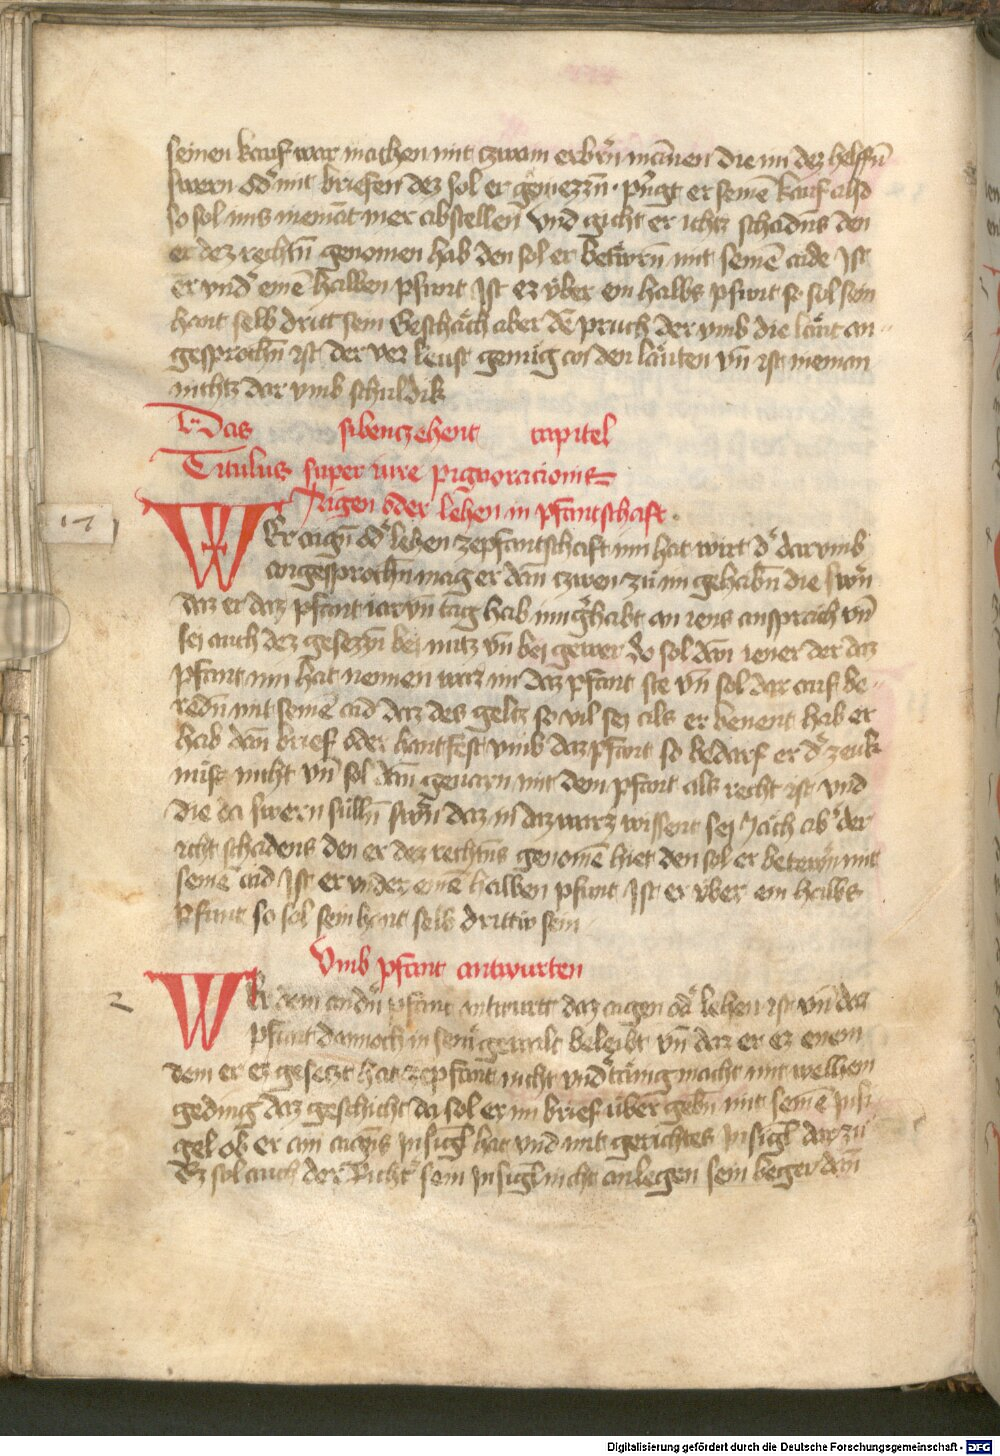 seinen kauf war machen mit czwain erbrn̄ mannen die im dez helffn̄
swern odˀ mit briefen dez sol er geniezzn̄ · pringt er seinē kauf also
so sol ims niemāt mer abstellen vnd gicht er ichtz schadns den
er dez rechtn̄ genomen hab den sol er betewrn̄ mit seinē aide Ist
er vndˀ einē halben pfunt Ist ez vber ein halbs pfunt so sol sein
hant selb dritt sein Geschäch aber dē pruch der vmb die läut an-
gesprochn̄ ist der ver leust genüg an den läuten vn̄ ist nieman
nichtz dar vmb schuldik
Das sibenczehent capitel
Titulus super iure pignoracionis
Aigen oder lehen in pfantschaft ·
17
WEr aign̄ odˀ lehen zepfantschaft inn hat wirt dˀ darvmb
angesprochn̄ mag er dan̄ czwen zu im gehabn̄ die swern̄
daz er daz pfant iar vn̄ tag hab inngehabt an iens ansprach vn̄
sei auch dez gesezzn̄ bei nutz vn̄ bei gewer do sol dan̄ iener der daz
pfant inn hat nennen waz im daz pfant ste vn̄ sol dar auf be-
redn̄ mit seinē aid daz des geltz so vil sei als er benent hab er
hab dan̄ brief oder hantfest vmb daz pfant so bedarf er dˀ zeuk
nüss nicht vn̄ sol dan̄ geuarn mit dem pfant als recht ist vnd
die da swern sülln̄ swern̄ daz in daz war wissent sei Jäch abˀ der
icht schadens den er dez rechtn̄s genomē hiet den sol er betewrn̄ mit
seinē aid Ist er vnder einē halben pfunt Ist er vber ein halbs
pfunt so sol sein hant selb drittw sein
Vmb pfant antwurten
2
WEr dem andn̄ pfant antwurtt daz aigen odˀ lehen ist vn̄ daz
pfant dannoch in seinˀ gewalt beleibt vn̄ daz er ez enem
dem er ez gesetzt hat zepfant nicht vndˀtänig macht mit welhem
geding daz geschicht da sol er im brief über gebn̄ mit seinē Insi
gel ob er ain aigens Insigl hat vnd mit gerichtes Insigl darzu
Ez sol auch der Richtˀ sein Insigl nicht anlegen sein beger dan̄
Digitalisierung gefördert durch die Deutsche Forschungsgemeinschaft - DFG